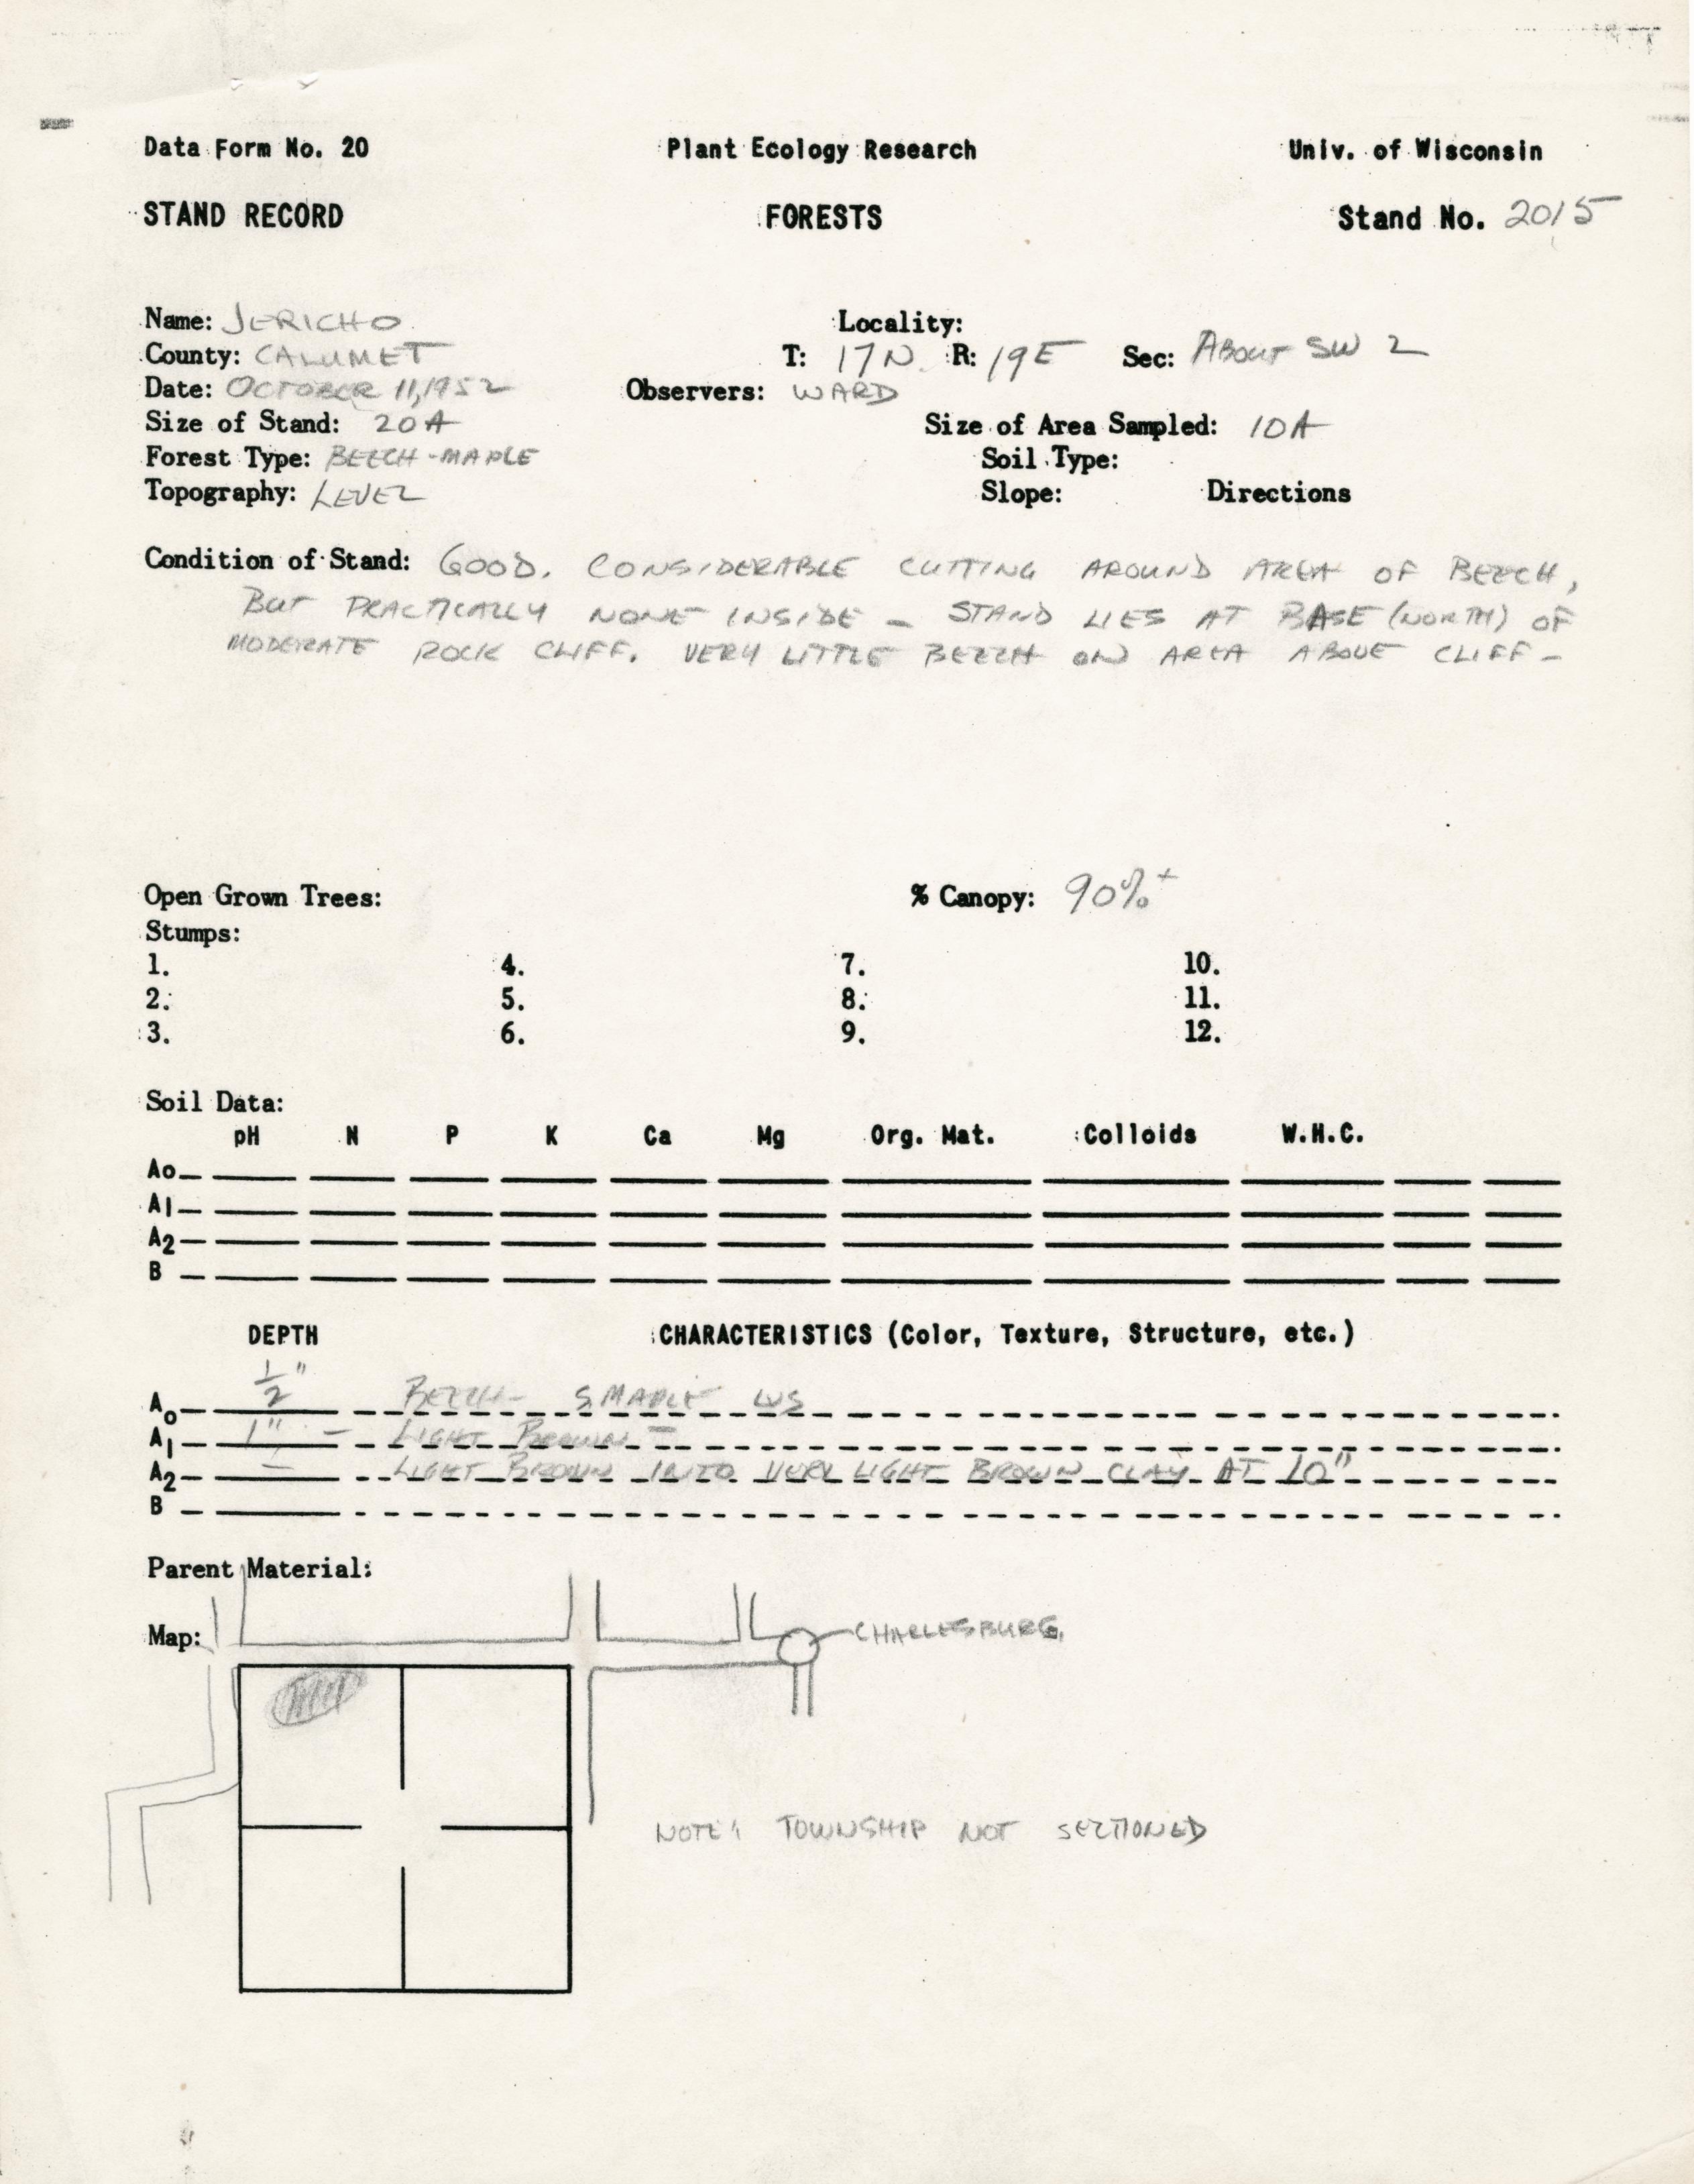 Data Form No. 20 Plant Ecology Research Univ. of Wisconsin
STAND RECORD FORESTS Stand No. 2015
Name: JERICHO Locality:
County: CALUMET T: 17N R: 19E Sec: ABOUT SW 2
Date: OCTOBER 11, 1952 Observers: WARD
Size of Stand: 20A Size of Area Sampled: 10A
Forest Type: BEECH-MAPLE Soil Type:
Topography: LEVEL Slope: Directions
Condition of Stand: GOOD. CONSIDERABLE CUTTING AROUND AREA OF BEECH,
BUT PRACTICALLY NONE INSIDE - STAND LIES AT BASE (NORTH) OF
MODERATE ROCK CLIFF. VERY LITTLE BEECH ON AREA ABOVE CLIFF -
Open Grown Trees: % Canopy: 90%+
Stumps:
1. 4. 7. 10.
2. 5. 8. 11.
3. 6. 9. 12.
Soil Data:
pH N P K Ca Mg Org. Mat. Colloids W.H.C.
Ao
A1
A2
B
DEPTH CHARACTERISTICS (Color, Texture, Structure, etc.)
Ao 1/2" BEECH- S MAPLE LVS
A1 1" - LIGHT BROWN -
A2 - LIGHT BROWN INTO VERY LIGHT BROWN CLAY AT 10"
B
Parent Material:
Map: CHARLESBURG
NOTE: TOWNSHIP NOT SECTIONED